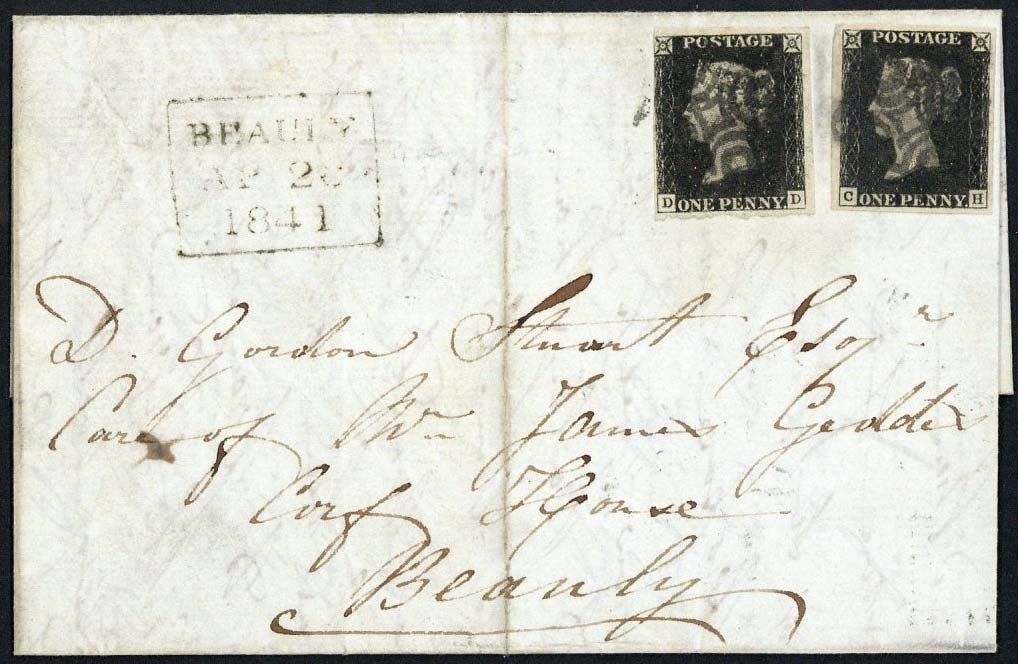 POSTAGE
D D
ONE PENNY
POSTAGE
C H
ONE PENNY
BEAULY
AP 26
1841
D. Gordon Stuart Esqr
Care of Mr James Geddes
Corf House
Beauly